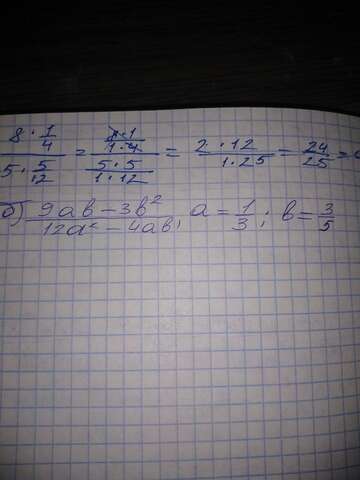 (8 · 1/4)/(5 · 5/12) = ((8·1)/(1·4))/((5·5)/(1·12)) = (2·12)/(1·25) = 24/25 =
б) (9ab − 3b²)/(12a² − 4ab), a = 1/3; b = 3/5